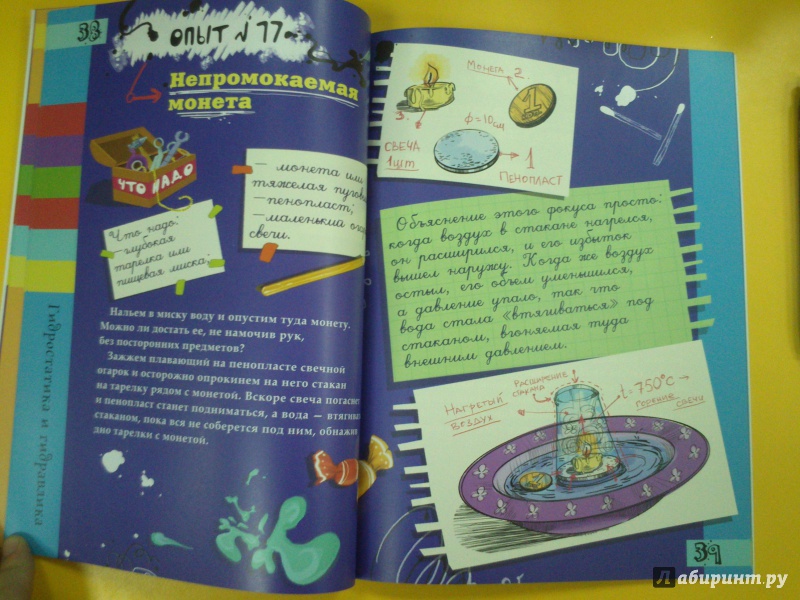 38
ОПЫТ N 17
Непромокаемая
монета
ЧТО НАДО
Что надо:
– глубокая
тарелка или
пищевая миска;
– монета или
тяжелая
– пенопласт;
– маленький
свечи.
Нальем в миску воду и опустим туда монету.
Можно ли достать ее, не намочив рук,
без посторонних предметов?
Зажжем плавающий на пенопласте свечной
огарок и осторожно опрокинем на него стакан
на тарелку рядом с монетой. Вскоре свеча погаснет
и пенопласт станет подниматься, а вода —
стаканом, пока вся не соберется под ним, обнажив
дно тарелки с монетой.
Гидростатика и гидравлика
МОНЕТА 2.
1
3.
ф=10см
СВЕЧА
1 шт
1
ПЕНОПЛАСТ
Объяснение этого фокуса просто:
когда воздух в стакане нагрелся,
он расширился, и его избыток
вышел наружу. Когда же воздух
остыл, его объем уменьшился,
а давление упало, так что
вода стала «втягиваться» под
стаканом, вгоняемая туда
внешним давлением.
НАГРЕТЫЙ
ВОЗДУХ
РАСШИРЕНИЕ
СТАКАНА
t. 750°С
ГОРЕНИЕ
СВЕЧИ
39
Лабиринт.ру